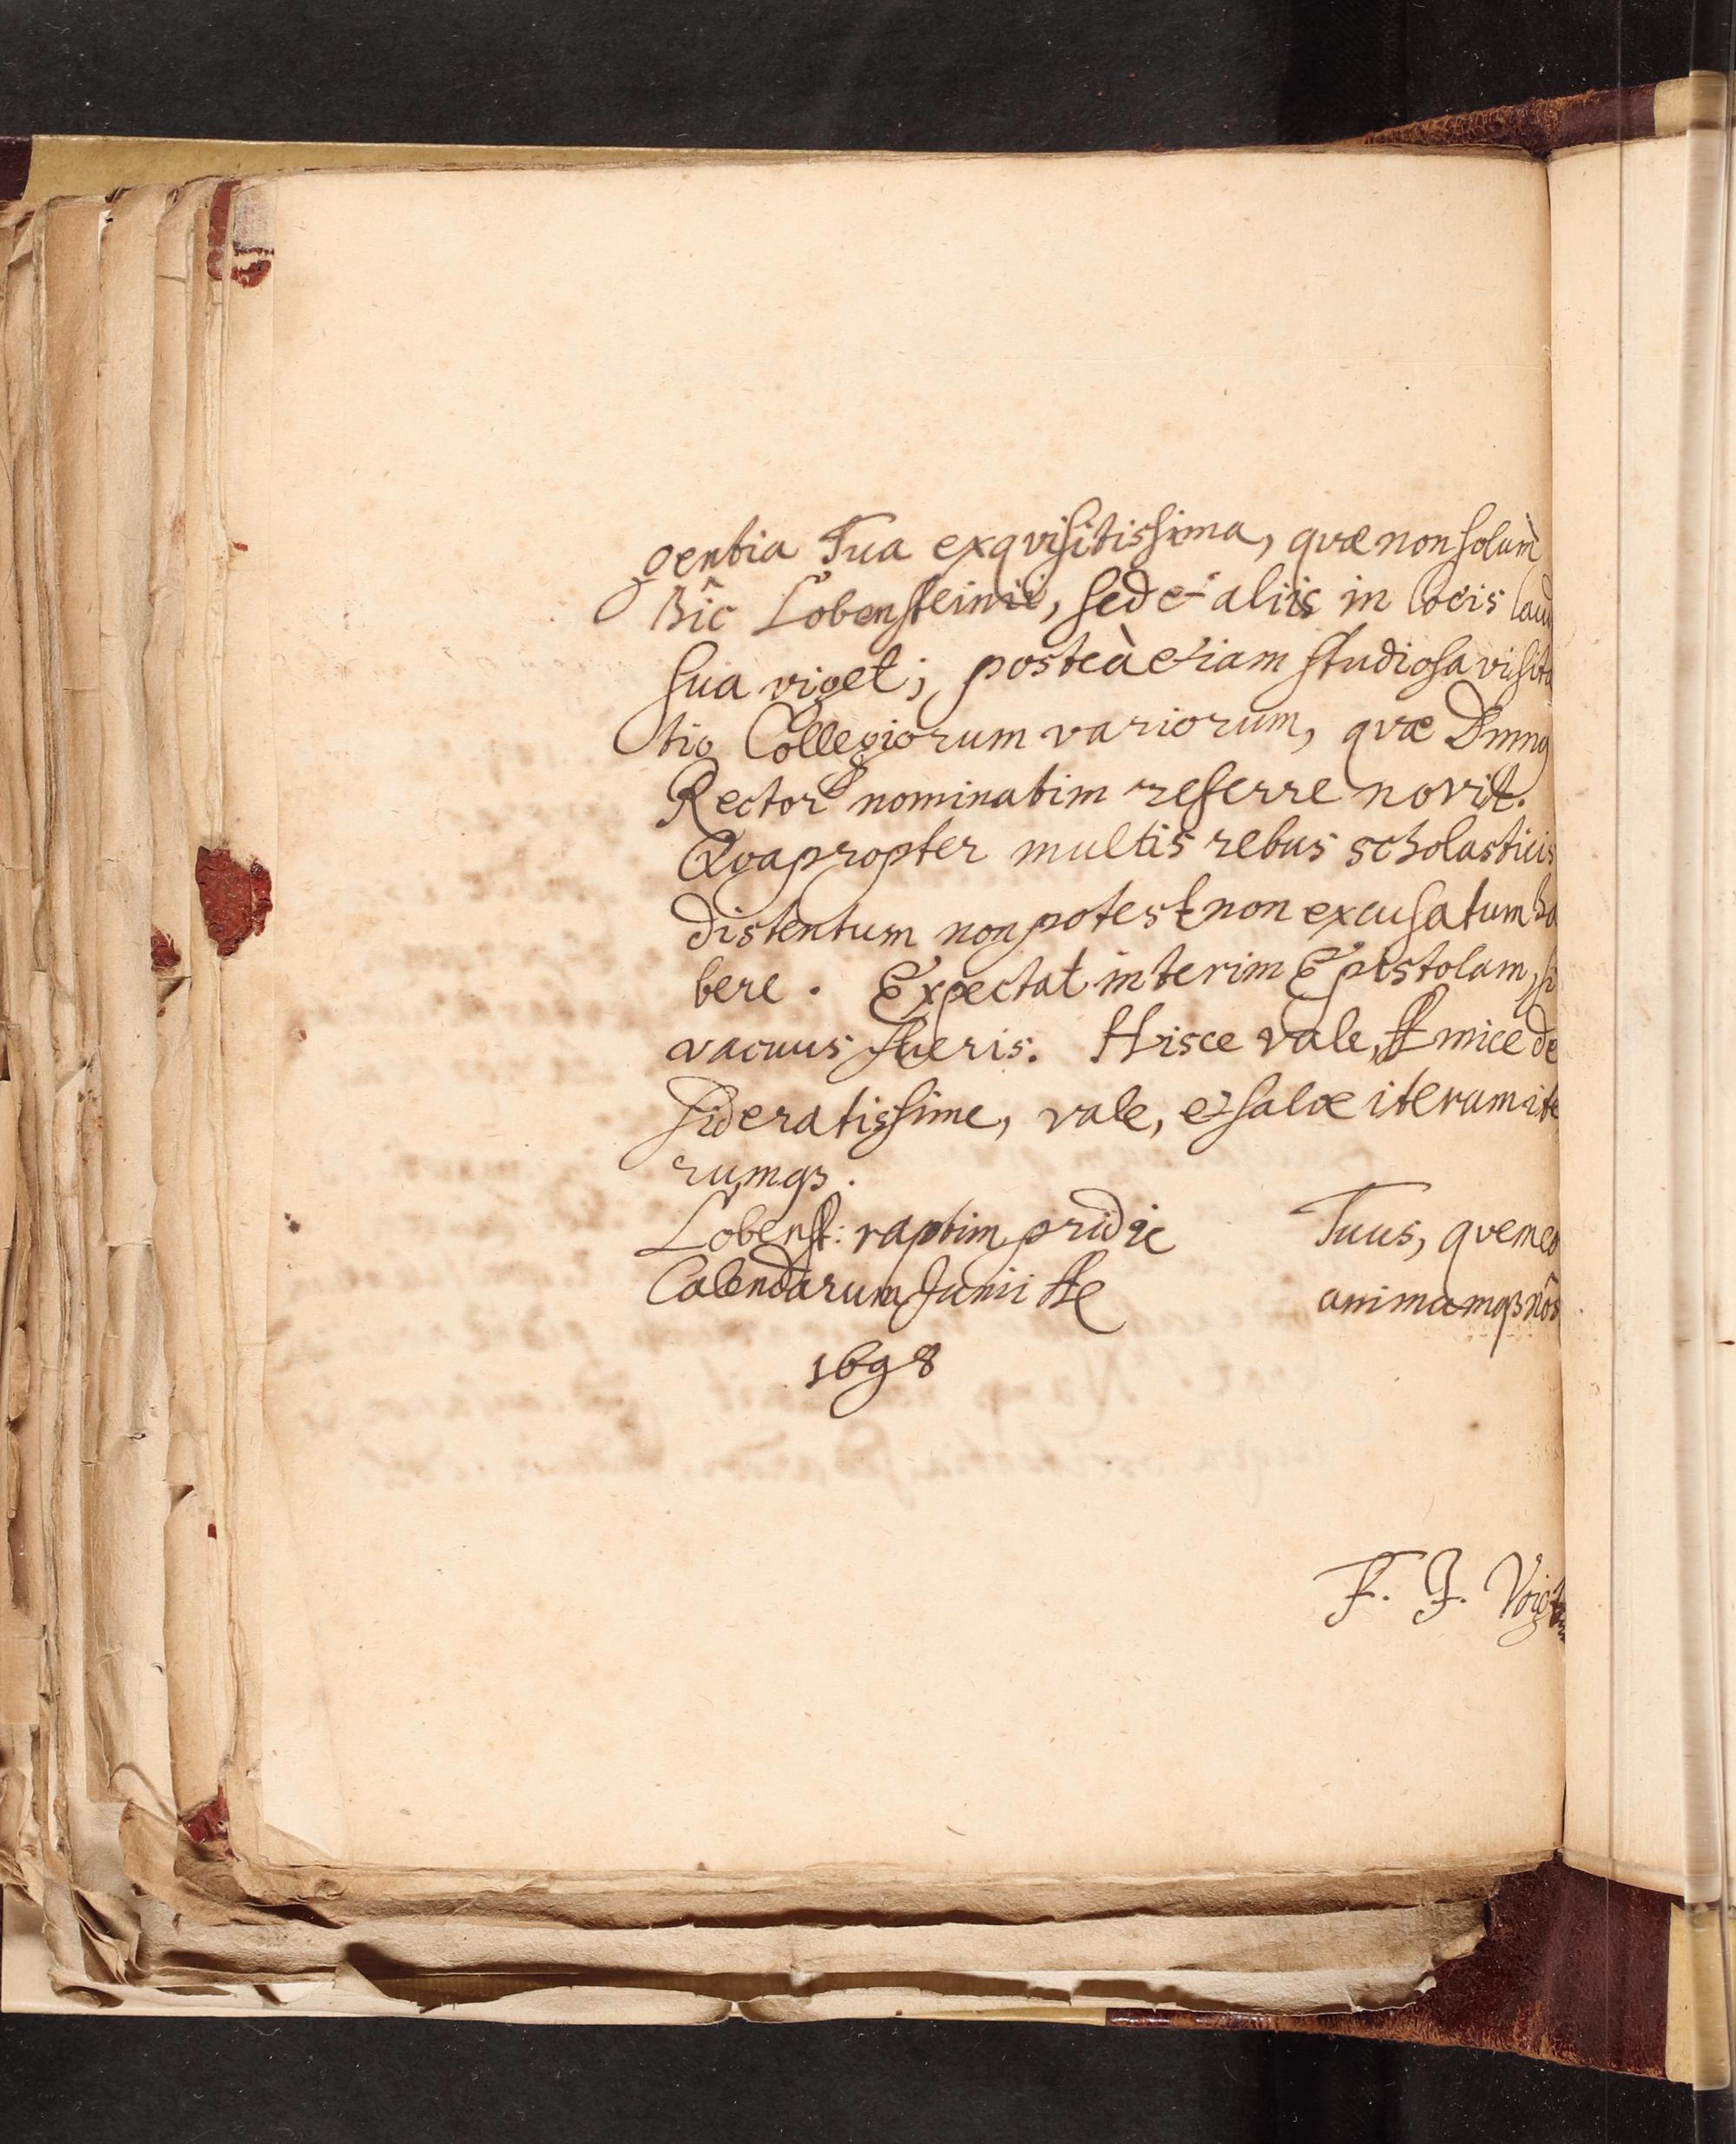 gentia Tua exqvisitissima, qvæ non solùm
hîc Lobensteinii, sed et aliis in locis lau
sua viget; posteà etiam studiosa visita
tio Collegiorum variorum, qvæ Dnng
Rector nominatim referre novit.
Qvapropter multis rebus scholasticis
distentum non potest non excusatum ha
bere. Expectat interim Epistolam, si
vacuus fueris. Hisce vale, Amice de
sideratissime, vale, et salve iterum ite
rumqз.
Lobenst: raptim pridie
Calendarum Junii
1698
Tuus, qvem eo
animamqз nôs
F. J. Voigt